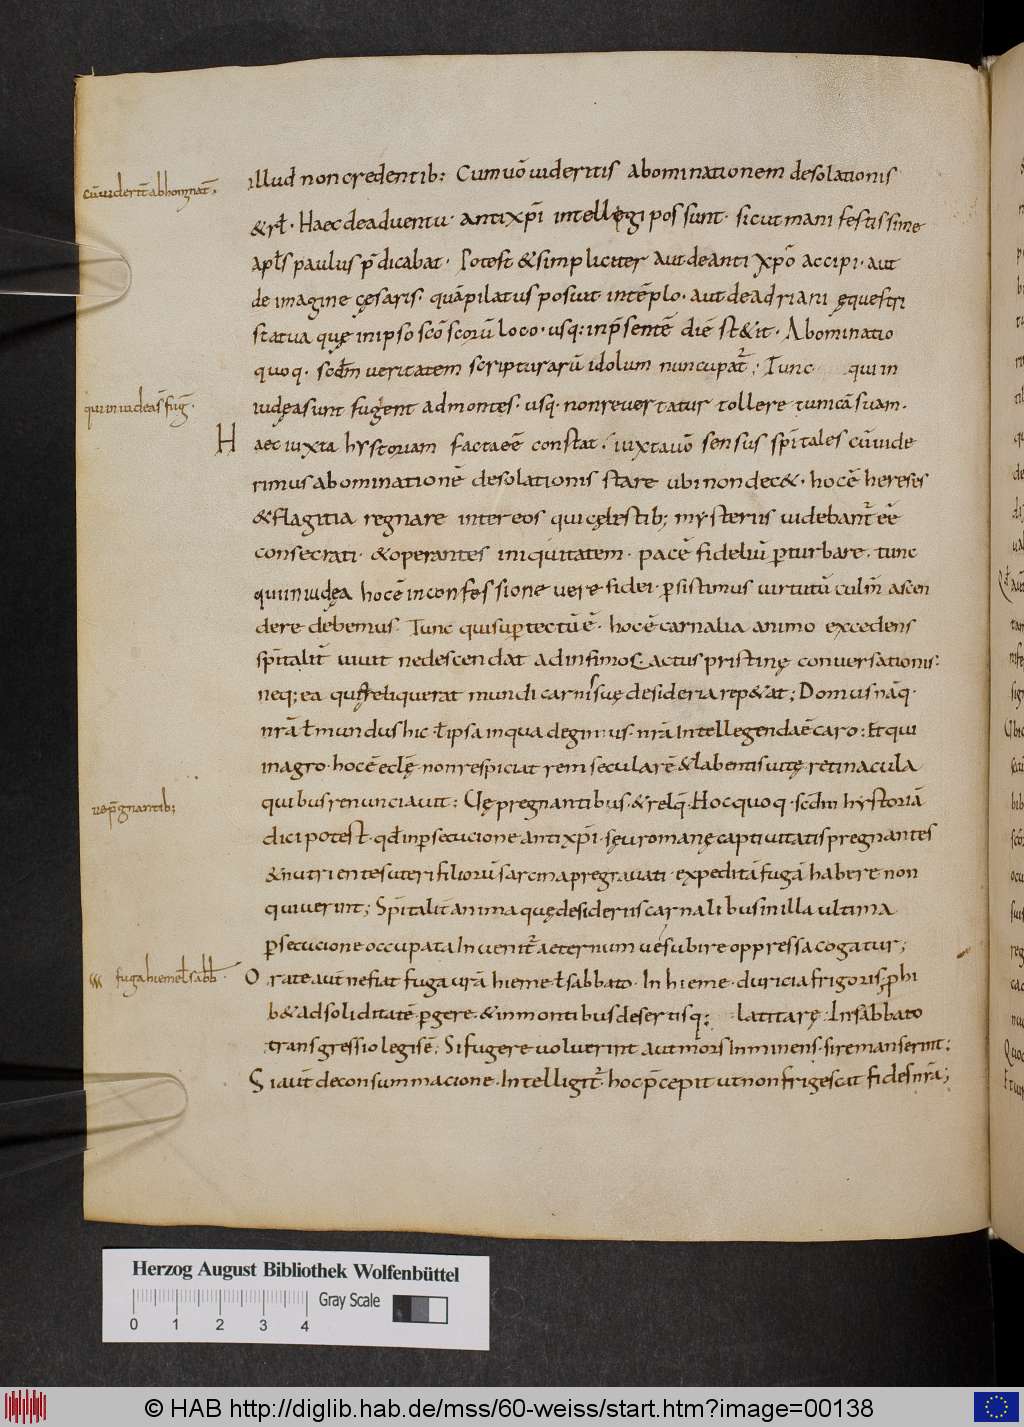 cū uiderit̄ abhominat̄
illud non credentib: Cum uō uideritis abominationem desolationis
& rł. Haec de aduentu antixp̄i intellegi possunt. sicut manifestissime
apłs paulus p̄dicabat. Potest & simpliciter aut de antixp̄o accipi. aut
de imagine cęsaris. quā pilatus posuit in tēplo. aut de adriani ęquestri
statua quę in ipso scō scorū loco. usq: in p̄sentē diē st&it. Abominatio
quoq. scdm ueritatem scripturarū idolum nuncupat̄; Tunc qui in
qui in iudeas fuḡ.
iudęa sunt fugient ad montes. usq. non reuertatur tollere tunicā suam.
Haec iuxta hystoriam facta eē constat. iuxta uō sensus sp̄itales cū uide
rimus abominationē desolationis stare ubi non dec&. hoc ē hereses
& flagitia regnare inter eos qui cęlestib; mysteriis uidebant̄ eē
consecrati. & operantes iniquitatem. pacē fideliū p̱turbare. tunc
qui in iudęa hoc ē in confessione uere fidei. p̱sistimus uirtutū culm̄ ascen
dere debemus. Tunc qui sup̱ tectū ē. hoc ē carnalia animo excedens
sp̄italit̄ uiuit ne descendat ad infimos actus pristinę conuersationis:
neq; ea quę reliquerat mundi carnisuę desideria rep&at; Domus nāq.
nrā ł mundus hic ł ipsa in qua degimus nrā intellegenda ē caro: Et qui
in agro. hoc ē eclę non respiciat rem secularē & labentis uitę retinacula
nep̄gnantib;
quibus renunciauit: Uę pregnantibus. & relq̄. Hoc quoq. scdm hystoriā
dici potest. qđ in p̱secucione antixp̄i. seu romanę captiuitatis pregnantes
& nutrientes uteri filiorū sarcina pregrauati. expeditā fugā habere non
quiuerint; Sp̄italit̄ anima quę desideriis carnalibus in illa ultima
p̱secucione occupata inuenit̄ aeternum ue subire oppressa cogatur;
fuga hieme ł sabb̄.
Orate aut̄ ne fiat fuga urā hieme ł sabbato. In hieme. duricia frigoris p̱hi
b& ad soliditatē p̱gere. & in montibus desertisq: latitare. In sabbato
transgressio legis ē. Si fugere uoluerint aut mors inminens. si remanserint:
Si aut̄ de consummacionē. Intelligit̄. hoc p̄cepit ut non frigescat fides nrā;
Herzog August Bibliothek Wolfenbüttel
Gray Scale
0 1 2 3 4
© HAB http://diglib.hab.de/mss/60-weiss/start.htm?image=00138